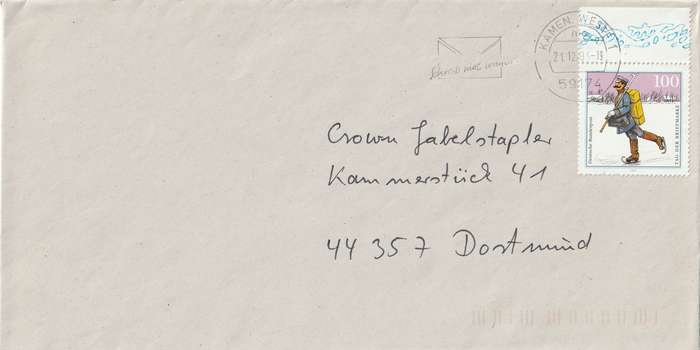 Schreib mal wieder
KAMEN, WESTF 1
59174
100
Deutsche Bundespost
TAG DER BRIEFMARKE
Crown Gabelstapler
Kammerstück 41
44 357 Dortmund